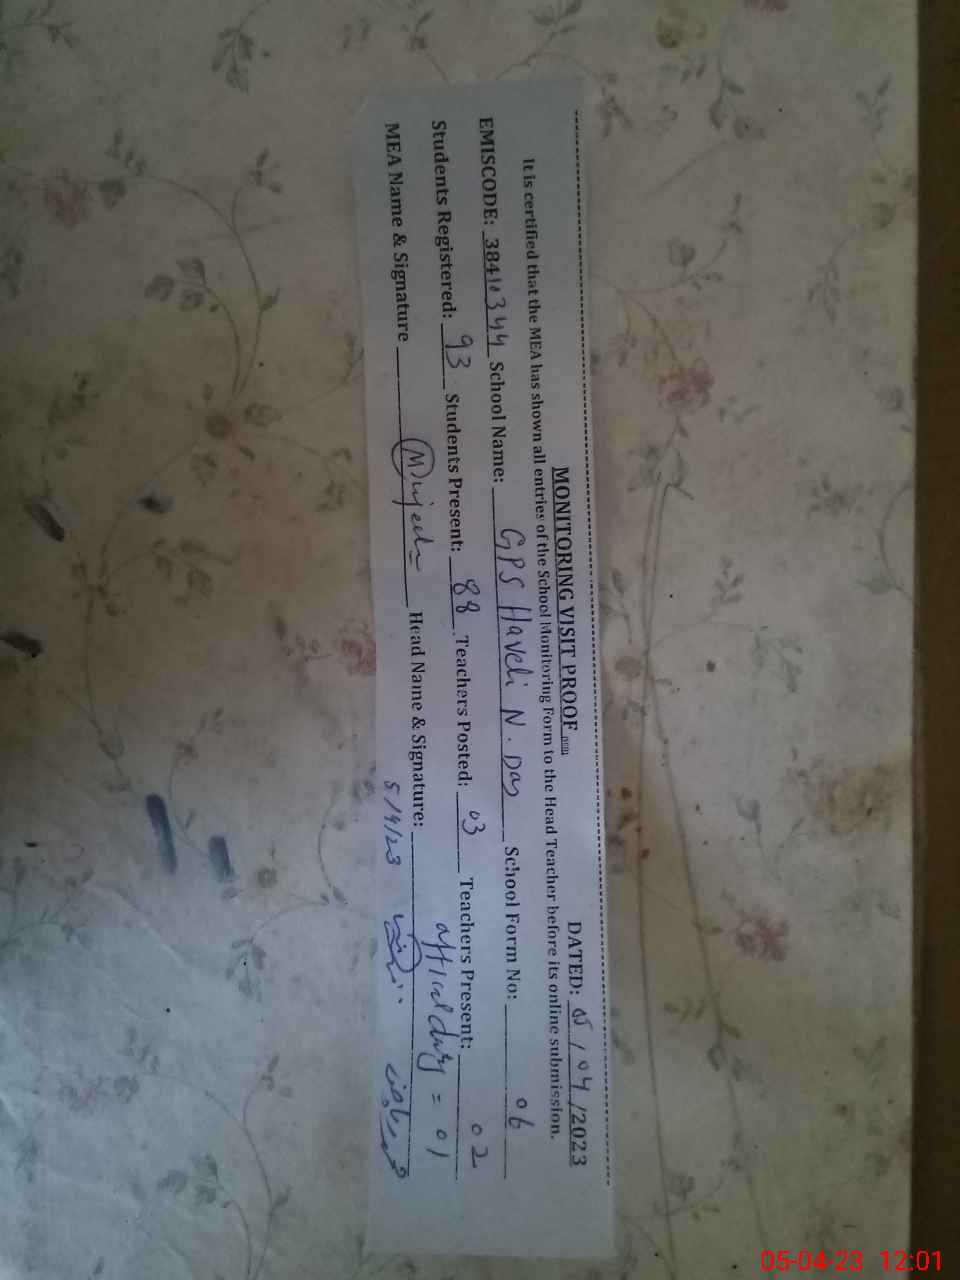 MONITORING VISIT PROOF
DATED: 05/04/2023
It is certified that the MEA has shown all entries of the School Monitoring Form to the Head Teacher before its online submission.
EMISCODE: 38410344 School Name: GPS Haveli N. Day School Form No: 06
Students Registered: 93 Students Present: 88 Teachers Posted: 03 Teachers Present: 02
official duty = 01
MEA Name & Signature Mujeeb Head Name & Signature:
5/4/23
05-04-23 12:01